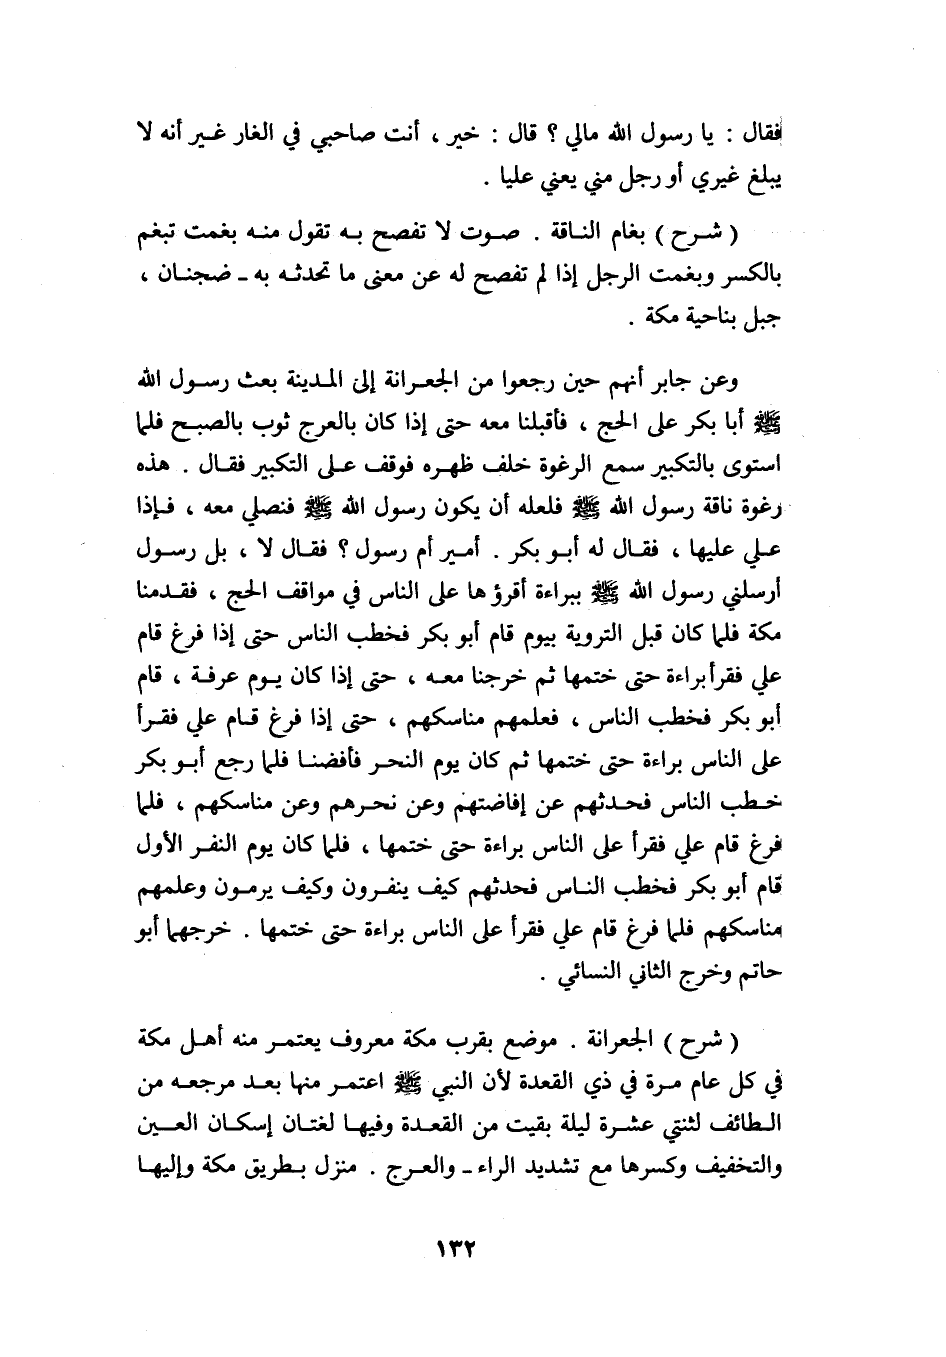 فقال : يا رسول الله مالي ؟ قال : خير ، أنت صاحبي في الغار غير أنه لا
يبلغ غيري أو رجل مني يعني عليا .
( شرح ) بغام الناقة . صوت لا تفصح به تقول منه بغمت تبغم
بالكسر وبغمت الرجل إذا لم تفصح له عن معنى ما تحدثه به ـ ضجنان ،
جبل بناحية مكة .
وعن جابر أنهم حين رجعوا من الجعرانة إلى المدينة بعث رسول الله
ﷺ أبا بكر على الحج ، فأقبلنا معه حتى إذا كان بالعرج ثوب بالصبح فلما
استوى بالتكبير سمع الرغوة خلف ظهره فوقف على التكبير فقال . هذه
رغوة ناقة رسول الله ﷺ فلعله أن يكون رسول الله ﷺ فنصلي معه ، فإذا
علي عليها ، فقال له أبو بكر . أمير أم رسول ؟ فقال لا ، بل رسول
أرسلني رسول الله ﷺ ببراءة أقرؤها على الناس في مواقف الحج ، فقدمنا
مكة فلما كان قبل التروية بيوم قام أبو بكر فخطب الناس حتى إذا فرغ قام
علي فقرأ براءة حتى ختمها ثم خرجنا معه ، حتى إذا كان يوم عرفة ، قام
أبو بكر فخطب الناس ، فعلمهم مناسكهم ، حتى إذا فرغ قام علي فقرأ
على الناس براءة حتى ختمها ثم كان يوم النحر فأفضنا فلما رجع أبو بكر
خطب الناس فحدثهم عن إفاضتهم وعن نحرهم وعن مناسكهم ، فلما
فرغ قام علي فقرأ على الناس براءة حتى ختمها ، فلما كان يوم النفر الأول
قام أبو بكر فخطب الناس فحدثهم كيف ينفرون وكيف يرمون وعلمهم
مناسكهم فلما فرغ قام علي فقرأ على الناس براءة حتى ختمها . خرجهما أبو
حاتم وخرج الثاني النسائي .
( شرح ) الجعرانة . موضع بقرب مكة معروف يعتمر منه أهل مكة
في كل عام مرة في ذي القعدة لأن النبي ﷺ اعتمر منها بعد مرجعه من
الطائف لثنتي عشرة ليلة بقيت من القعدة وفيها لغتان إسكان العين
والتخفيف وكسرها مع تشديد الراء ـ والعرج . منزل بطريق مكة وإليها
١٣٢